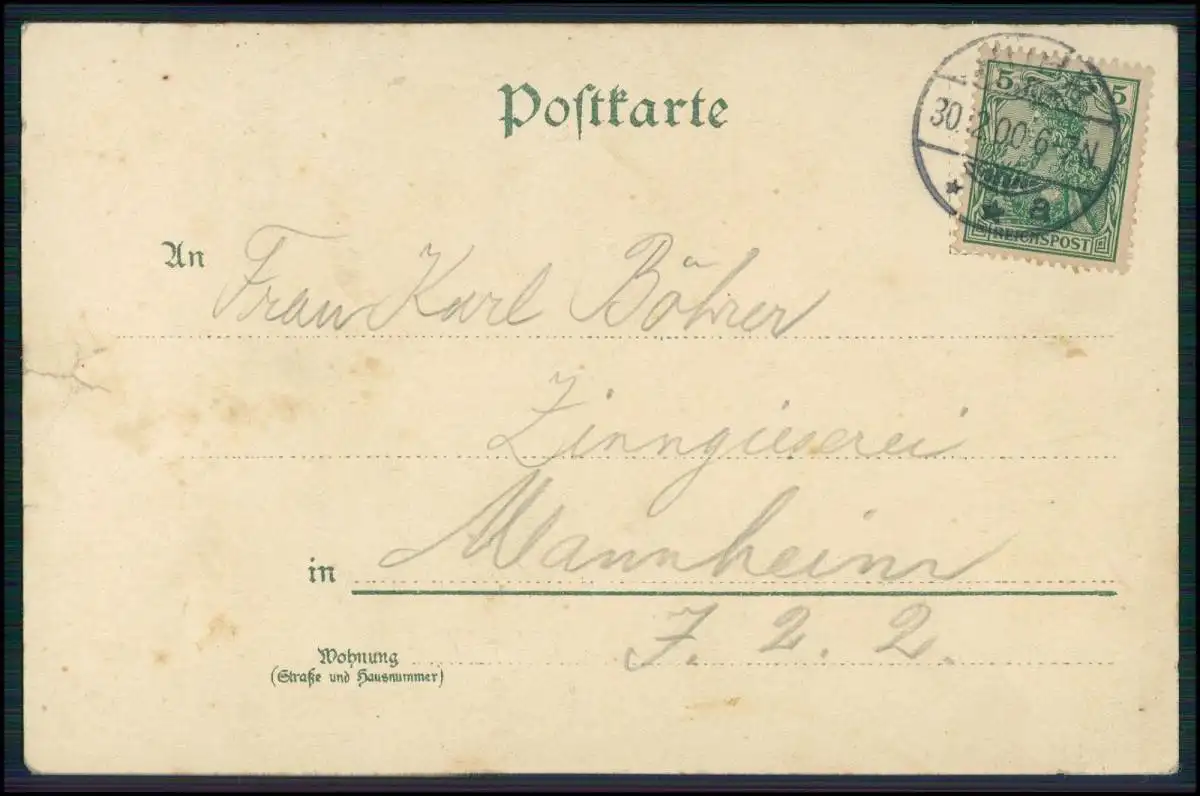 Postkarte
5 5
30.12.00.6-7N.
a
REICHSPOST
An Frau Karl Böhrer
Zinngieserei
in Mannheim
Wohnung J. 2. 2.
(Straße und Hausnummer)